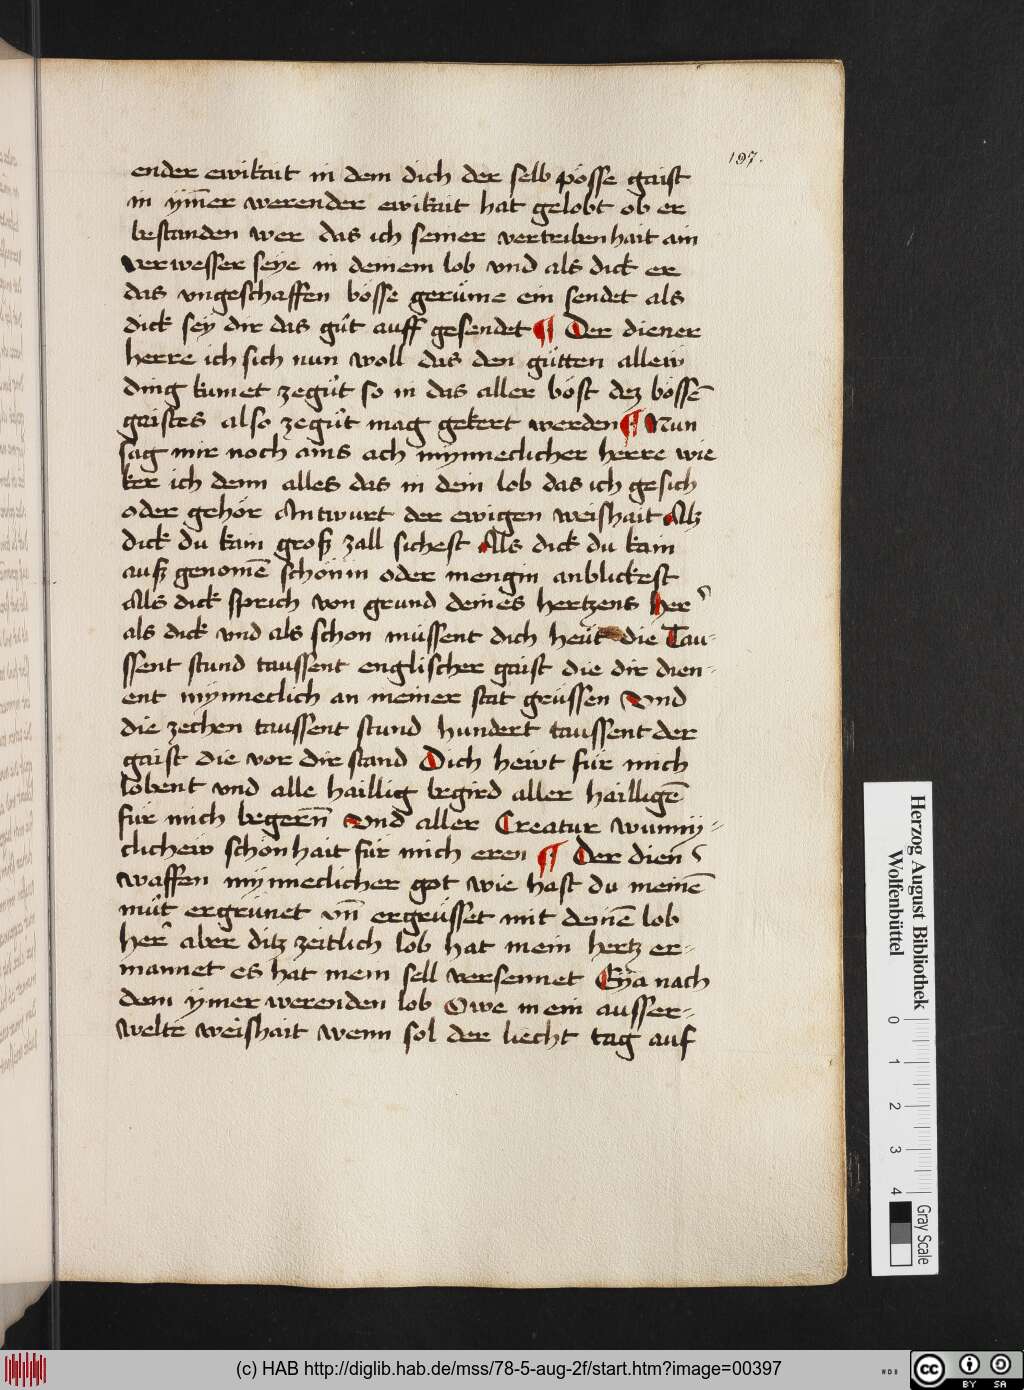 197.
ender ewikait in dem dich der selb pösse gaist
in ym̄er werender ewikait hat gelobt ob er
bestanden wer das ich seiner vertribenhait ain
verwesser seye in deinem lob vnd als dick er
das vngeschaffen bösse gerüme ein sendet als
dick sey dir das gůt auff gesendet ¶ Der diener
herre ich sich nun woll das den gůtten allew
ding kumet zegůt so in das aller böst dez bössē
gaistes also zegůt mag gekert werden ¶ Nun
sag mir noch ains ach mynneclicher herre wie
ker ich denn alles das in dein lob das ich gesich
oder gehör Antwurt der ewigen weishait Alz
dick du kain groß zall sichest Als dick du kain
auß genomē schönin oder mengin anblickest
Als dick sprich von grund deines hertzens Her
als dick vnd als schon müssent dich heüt die Tau-
ssent stund taussent englischer gaist die dir dien-
ent mynneclich an meiner stat grüssen Vnd
die zechen taussent stund hundert taussent der
gaist die vor dir stand Dich hewt für mich
lobent vnd alle haillig begird aller hailligē
für mich begern̄ Vnd aller Creatur wunny-
clichew schönhait für mich eren ¶ Der dien
waffen mynneclicher got wie hast du meinē
můt ergrünet vn̄ ergrüsset mit deinē lob
her aber ditz zeitlich lob hat mein hertz er-
mannet es hat mein sell versennet Eya nach
dem ymer werenden lob Owe mein ausser-
welte weishait wenn sol der liecht tag auf
Herzog August Bibliothek
Wolfenbüttel
0
1
2
3
4
Gray Scale
(c) HAB http://diglib.hab.de/mss/78-5-aug-2f/start.htm?image=00397
WDB
cc
BY SA